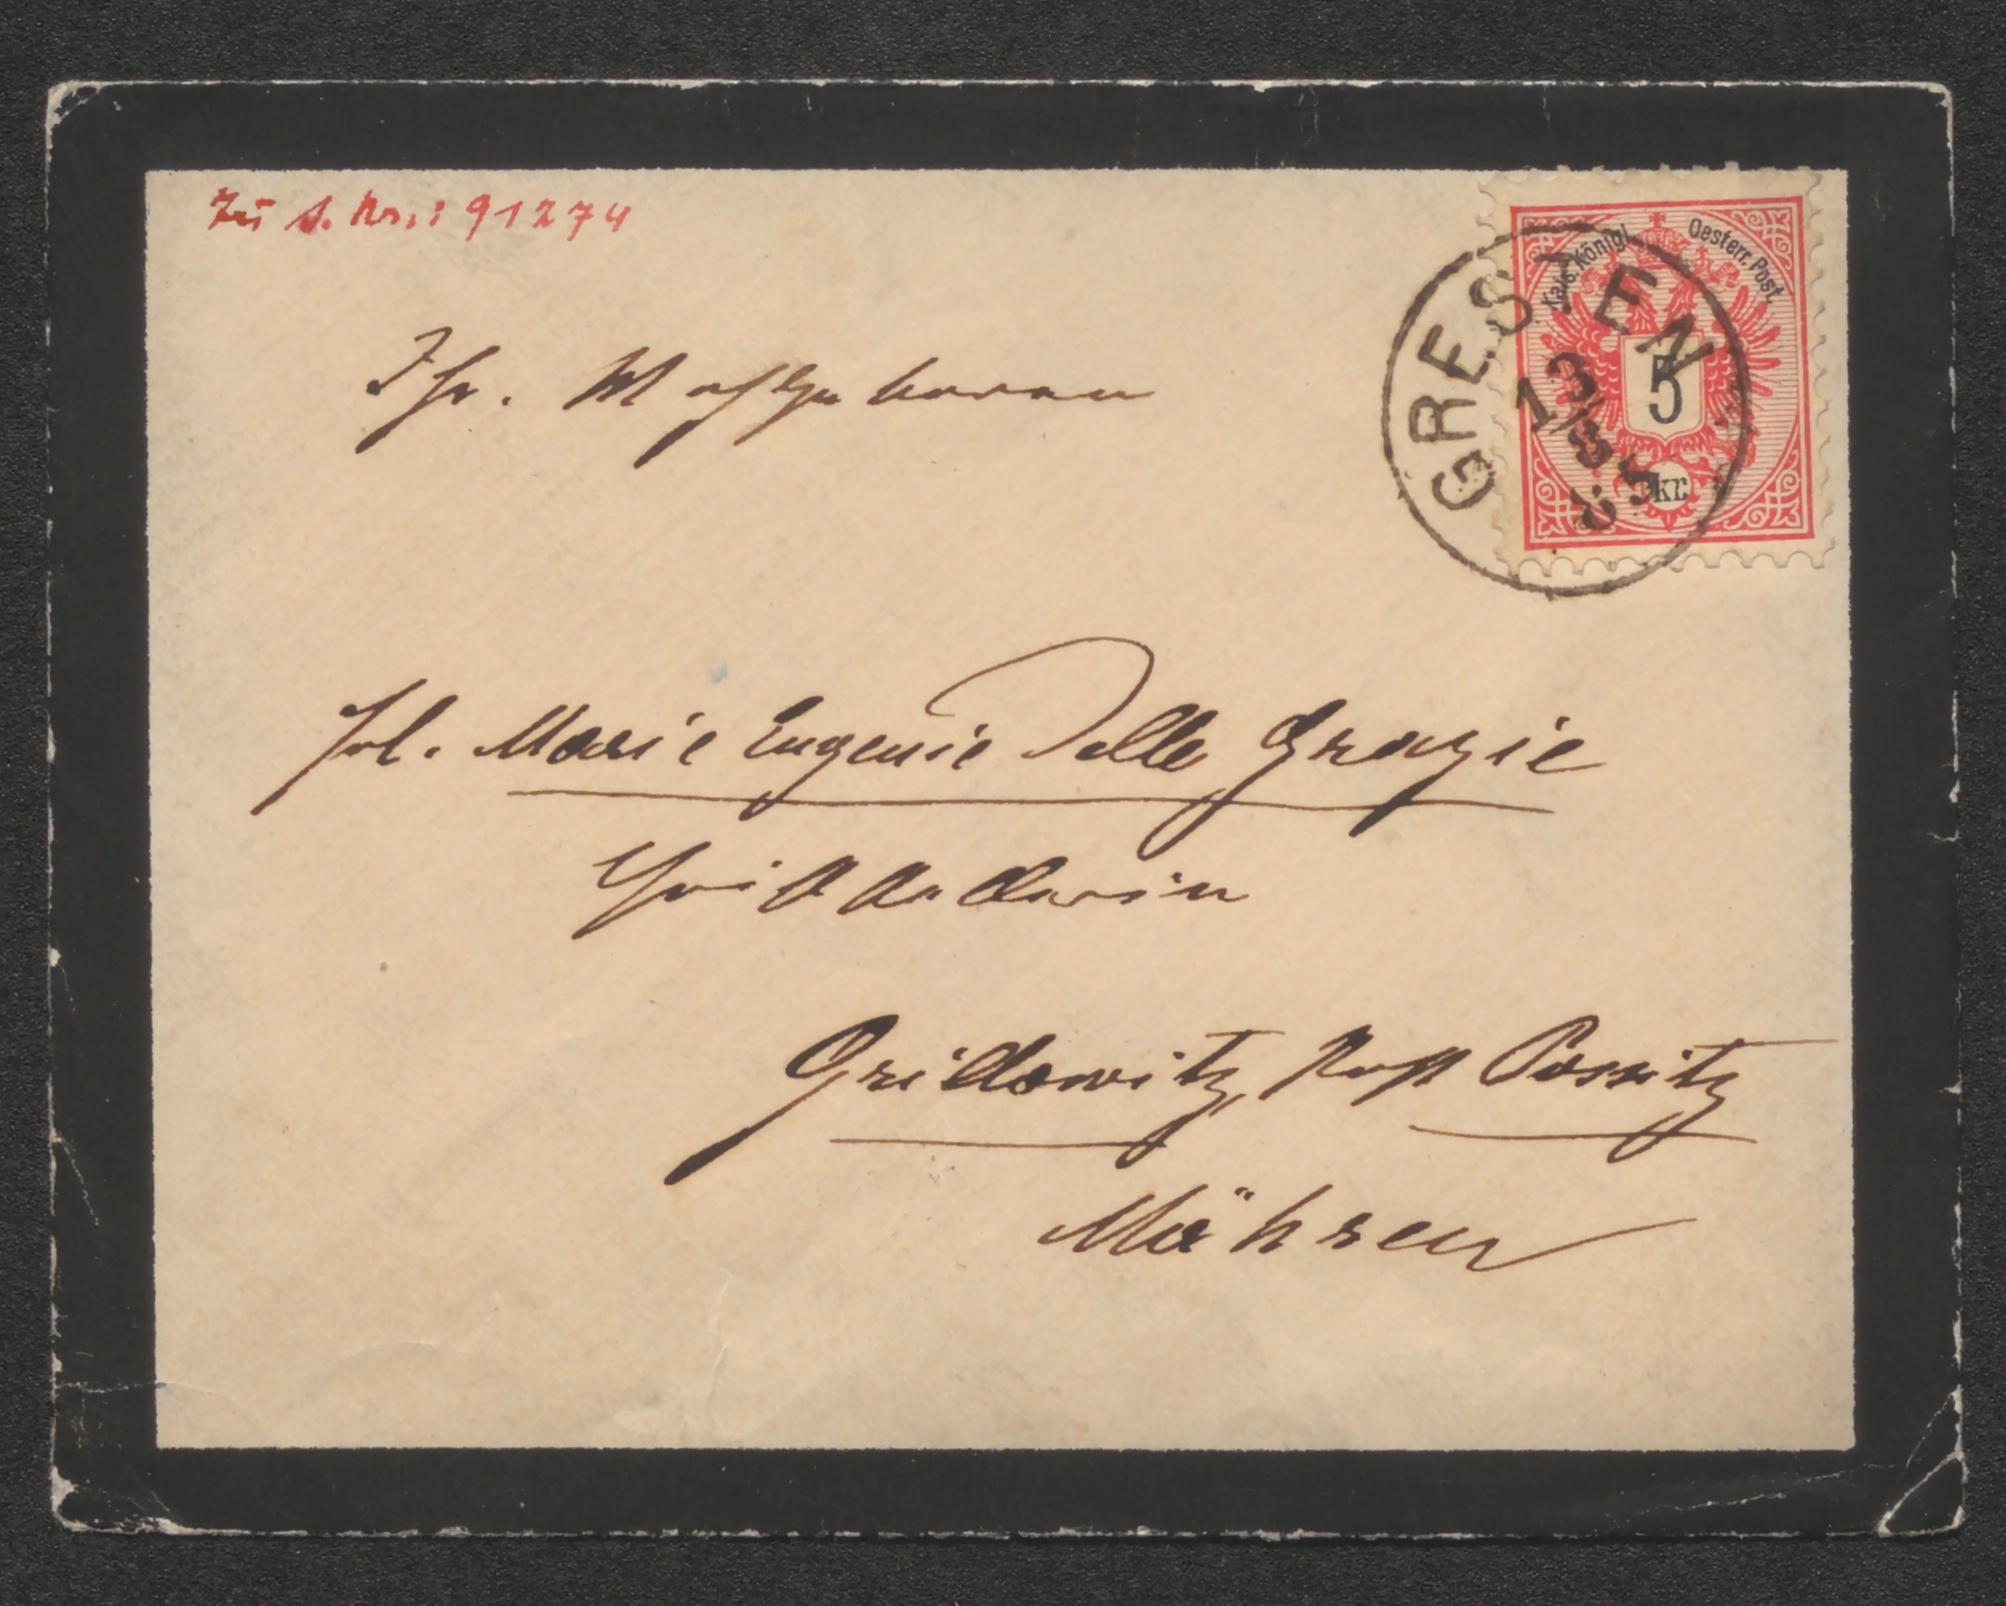 Zu I. Nr.: 91274
Kais. Königl. Oesterr. Post.
5
kr.
GRESTEN
13/8
85
Ihr. Wohlgeboren
Frl. Marie Eugenie Delle Grazie
Schriftstellerin
Grillowitz, Post Possitz
Mähren